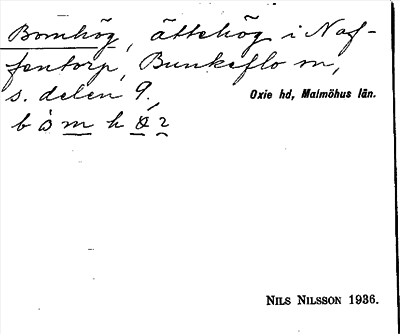 Bomhög, ättehög i Naf-
fentorp, Bunkeflo sn,
s. delen 9.
Oxie hd, Malmöhus län.
NILS NILSSON 1936.